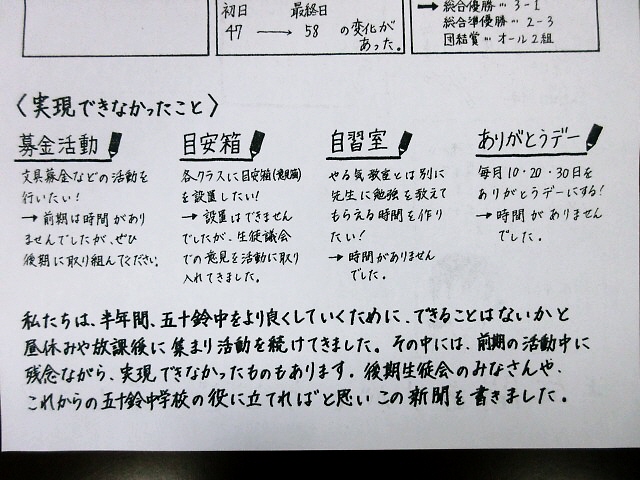 初日　最終日
47 → 58 の変化が
あった。
→ 総合優勝…3-1
総合準優勝…2-3
団結賞…オール2組
〈実現できなかったこと〉
募金活動
文具募金などの活動を
行いたい!
→ 前期は時間があり
ませんでしたが、ぜひ
後期に取り組んでください。
目安箱
各クラスに目安箱(意見箱)
を設置したい!
→ 設置はできません
でしたが、生徒議会
での意見を活動に取り
入れてきました。
自習室
やる気教室とは別に
先生に勉強を教えて
もらえる時間を作り
たい!
→ 時間がありません
でした。
ありがとうデー
毎月10・20・30日を
ありがとうデーにする!
→ 時間がありません
でした。
私たちは、半年間、五十鈴中をより良くしていくために、できることはないかと
昼休みや放課後に集まり活動を続けてきました。その中には、前期の活動中に
残念ながら、実現できなかったものもあります。後期生徒会のみなさんや、
これからの五十鈴中学校の役に立てればと思いこの新聞を書きました。